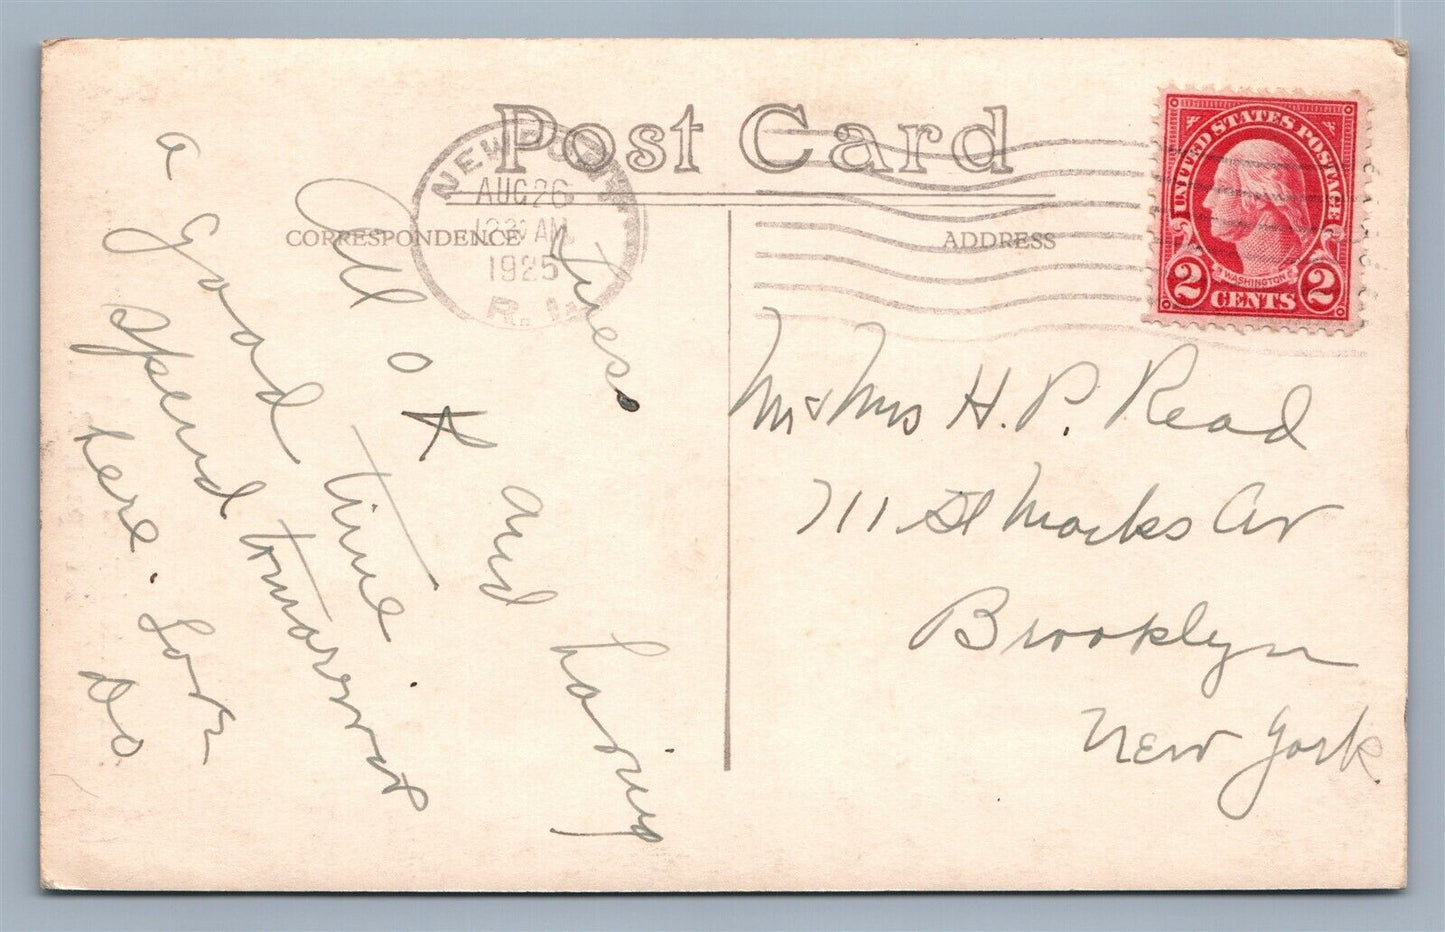 Post Card
NEWPORT
AUG 26
AM
1925
R.I.
CORRESPONDENCE
ADDRESS
UNITED STATES POSTAGE
WASHINGTON
2 CENTS 2
All O K and having
a good time
spend tomorrow
here. Love
Mr & Mrs H. P. Read
711 St Marks Av
Brooklyn
New York.